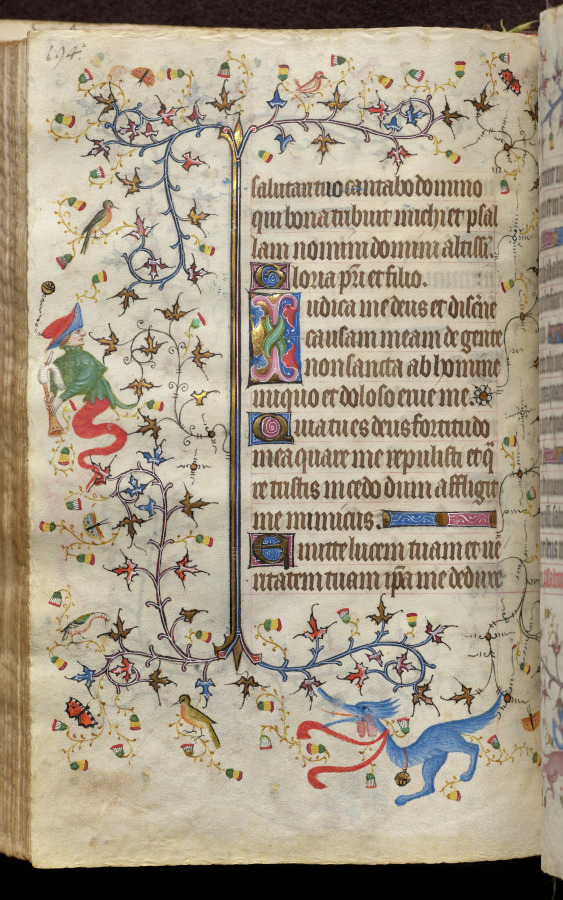 salutari tuo cantabo domino
qui bona tribuit michi et psal
lam nomini domini altissi.
Gloria pri et filio.
Iudica me deus et discerne
causam meam de gente
non sancta ab homine
iniquo et doloso erue me
Quia tu es deus fortitudo
mea quare me repulisti et q̄
re tristis incedo dum affligit
me inimicus.
Emitte lucem tuam et ue
ritatem tuam ipa me deduxe